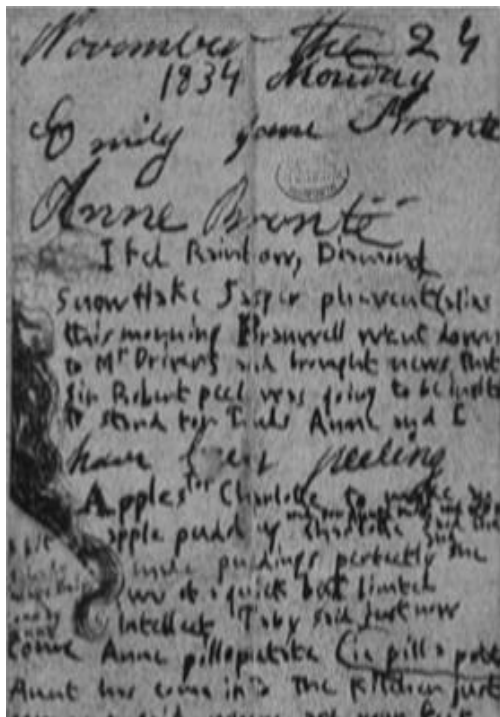 November the 24
1834 Monday
Emily Jane Brontë
Anne Brontë
I fed Rainbow, Diamond
Snowflake Jasper pheasent (alias
this morning Branwell went down
to Mr Drivers and brought news that
Sir Robert peel was going to be invited
to stand for Leeds Anne and I
have been peeling
Apples for Charlotte to make
apple pudding Charlotte said she
made puddings perfectly she
was of a quick but limited
Intellect Taby said just now
Come Anne pillopatate (ie pill a potato
Aunt has come in the kitchen just